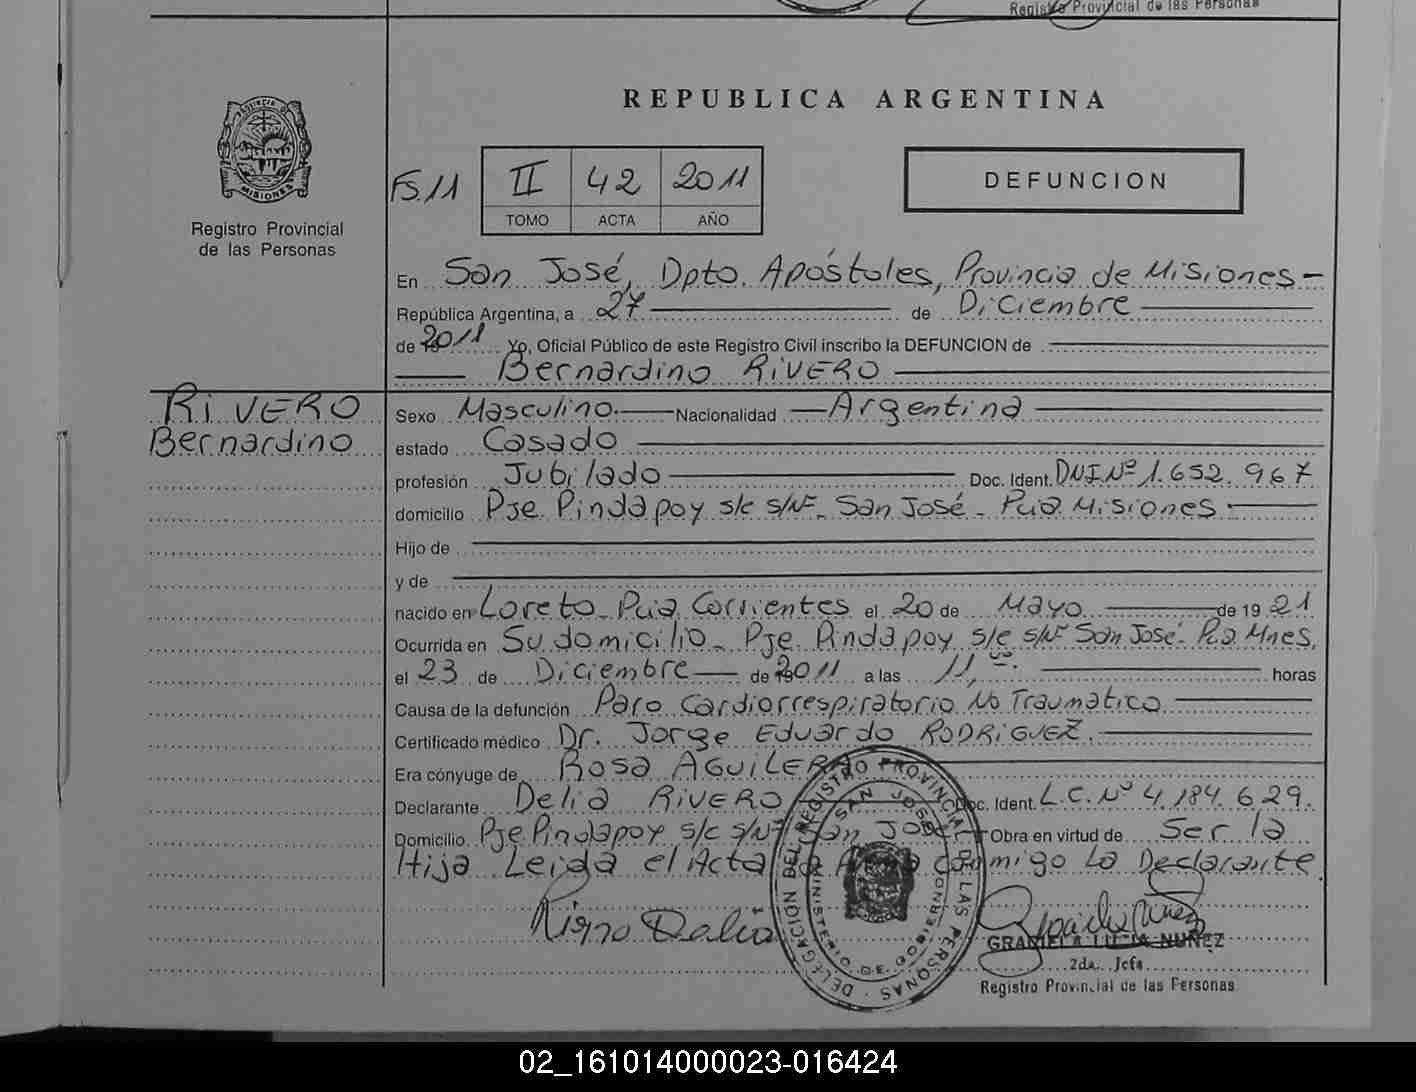 Registro Provincial de las Personas
REPUBLICA ARGENTINA
PROVINCIA DE
MISIONES
Registro Provincial
de las Personas
FS.11
II 42 2011
TOMO ACTA AÑO
DEFUNCION
En San José, Dpto. Apóstoles, Provincia de Misiones-
República Argentina, a 27 de Diciembre
de 2011 Yo, Oficial Público de este Registro Civil inscribo la DEFUNCION de
Bernardino RIVERO
RIVERO
Bernardino
Sexo Masculino. Nacionalidad Argentina
estado Casado
profesión Jubilado Doc. Ident. DNI Nº 1.652.967
domicilio Pje. Pindapoy s/c s/Nº- San José- Pcia Misiones.
Hijo de
y de
nacido en Loreto- Pcia. Corrientes el 20 de Mayo de 19 21
Ocurrida en Su domicilio- Pje. Pindapoy s/c s/Nº San José- Pcia Mnes.
el 23 de Diciembre de 2011 a las 11,00. horas
Causa de la defunción Paro Cardiorrespiratorio No Traumático
Certificado médico Dr. Jorge Eduardo RODRIGUEZ.
Era cónyuge de Rosa AGUILERA
Declarante Delia RIVERO Doc. Ident. L.C. Nº 4.184.629.
Domicilio Pje Pindapoy s/c s/Nº San José Obra en virtud de Ser la
Hija Leida el Acta la firma conmigo La Declarante.
DELEGACIÓN DEL REGISTRO PROVINCIAL DE LAS PERSONAS
SAN JOSE
MINISTERIO DE GOBIERNO
Delia
GRACIELA LUCIA NUÑEZ
2da. Jefa
Registro Provincial de las Personas
02_161014000023-016424